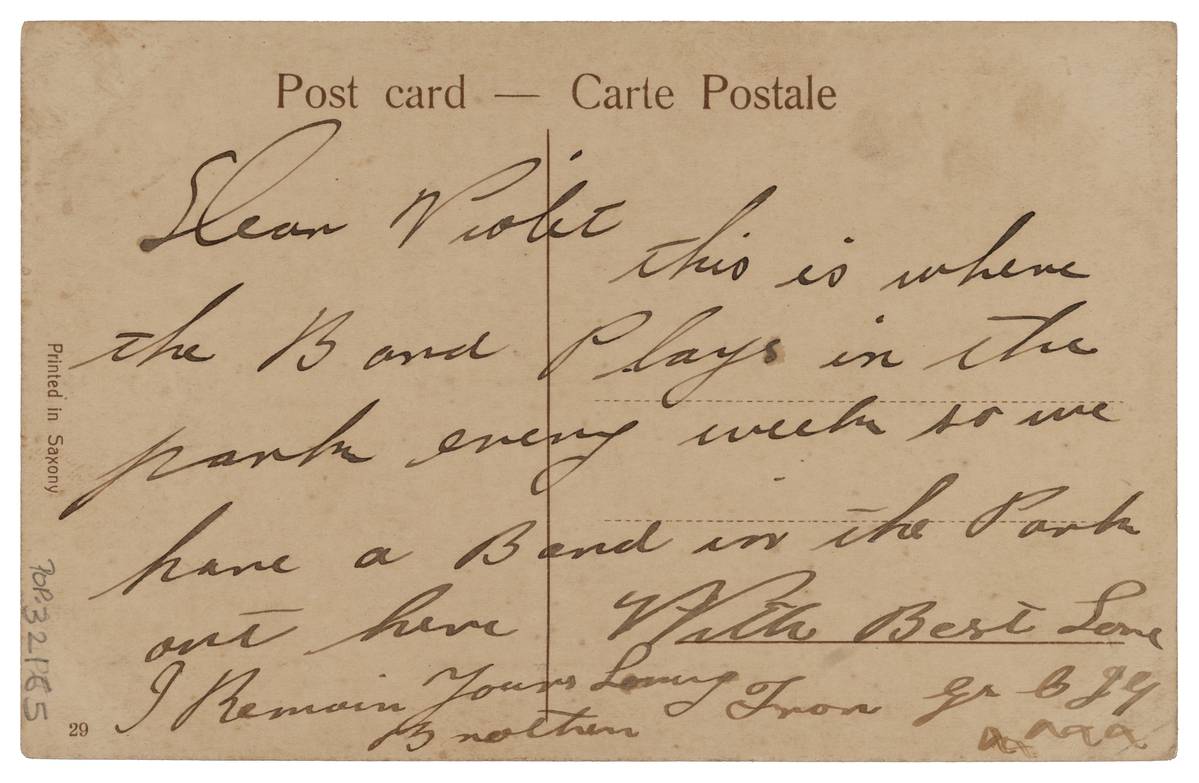 Post card — Carte Postale
Dear Violet
this is where
the Band Plays in the
park every week so we
have a Band in the Park
out here With Best Love
I Remain Yours Loving
Brother
Printed in Saxony
29